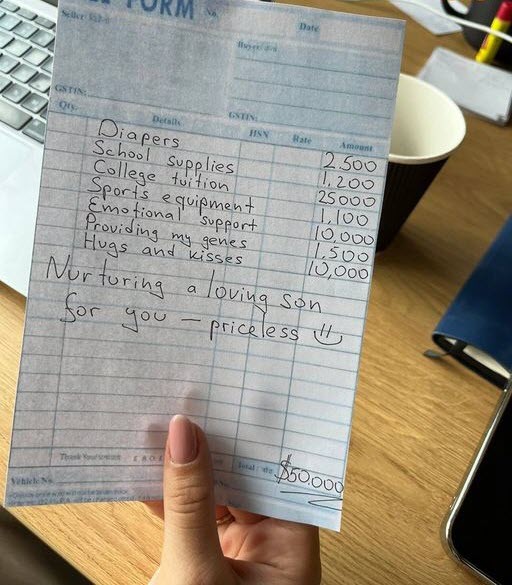 FORM No.
Date
GSTIN:
GSTIN:
Qty. Details HSN Rate Amount
Diapers 2.500
School supplies 1,200
College tuition 25000
Sports equipment 1,100
Emotional support 10,000
Providing my genes 1,500
Hugs and kisses 10,000
Nurturing a loving son
for you – priceless
Total
$50.000
Vehicle No.